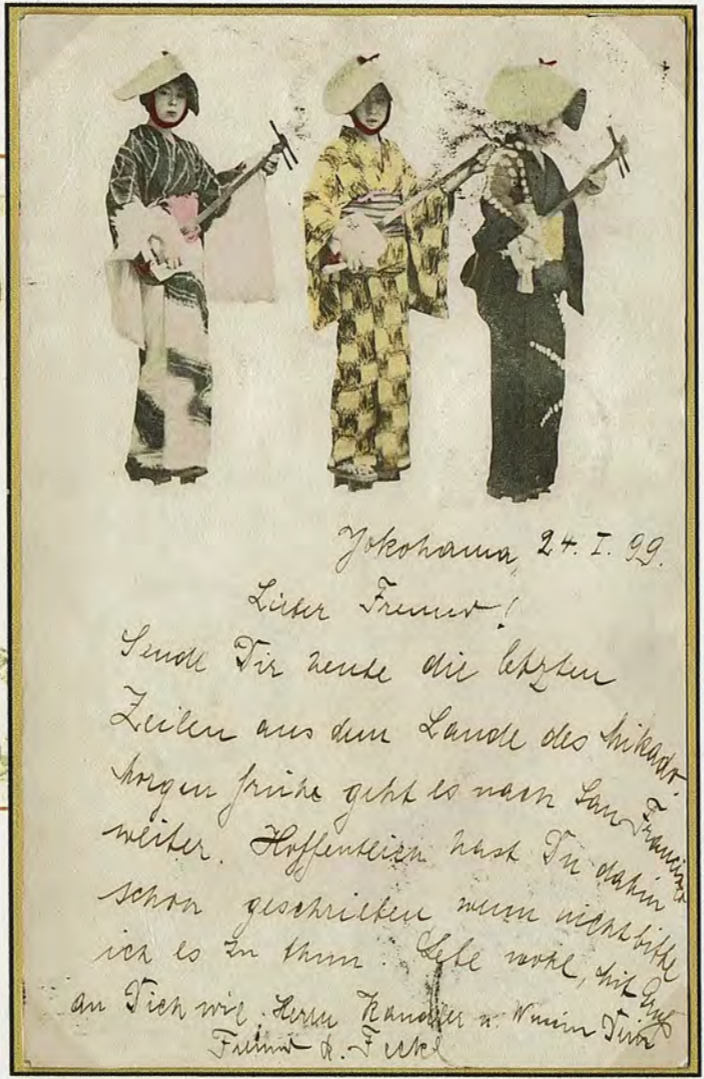 Yokohama, 24. I. 99.
Lieber Freund!
Sende Dir heute die letzten
Zeilen aus dem Lande des Mikado.
Morgen frühe geht es nach San Francisco
weiter. Hoffentlich hast Du dahin
schon geschrieben wenn nicht bitte
ich es zu thun. Lebe wohl, mit Gruß
an Dich wie Herrn u. Dein
Freund